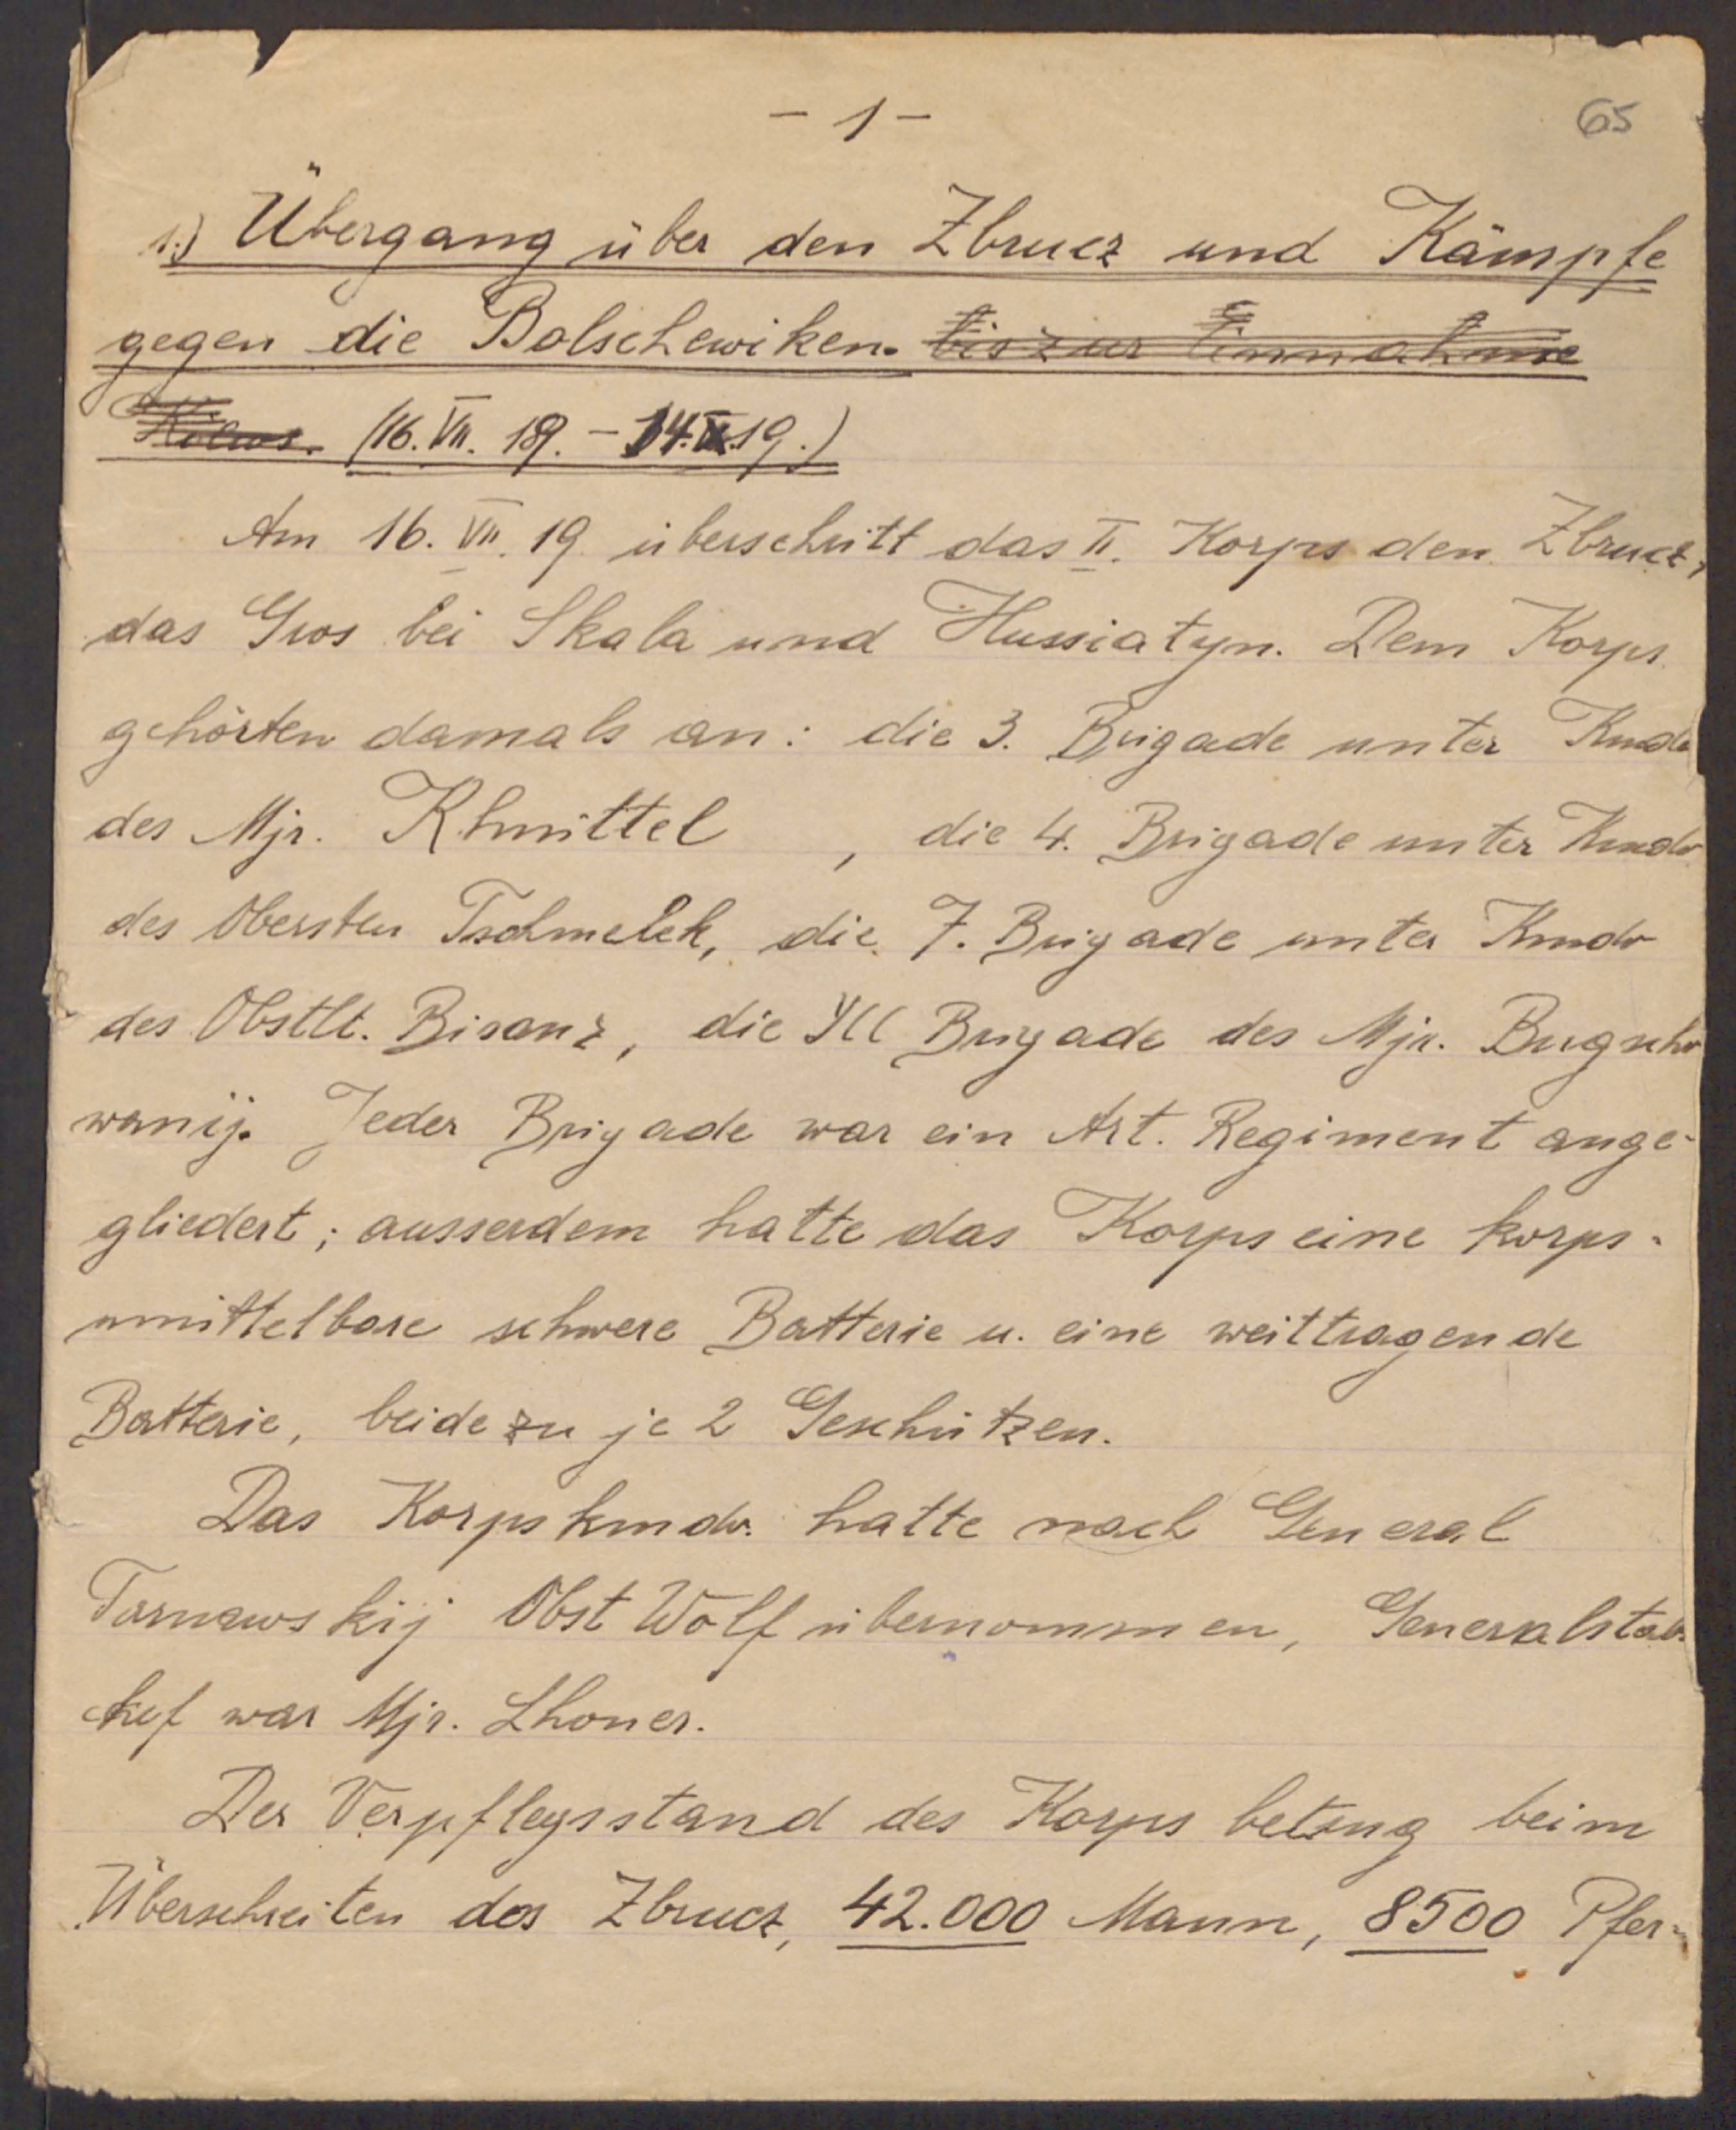 - 1 -
65
1.) Übergang über den Zbrucz und Kämpfe
gegen die Bolschewiken. bis zur Einnahme
Kiews. (16. VII. 19. - 14. 19.)
Am 16. VII. 19 überschritt das II. Korps den Zbrucz,
das Gros bei Skala und Hussiatyn. Dem Korps
gehörten damals an: die 3. Brigade unter Kmdo
des Mjr. Khmittel, die 4. Brigade unter Kmdo
des Obersten Tschmelek, die 7. Brigade unter Kmdo
des Obstlt. Bisanz, die Brigade des Mjr.
wanij. Jeder Brigade war ein Art. Regiment ange-
gliedert; ausserdem hatte das Korps eine korps-
unmittelbare schwere Batterie u. eine weittragende
Batterie, beide zu je 2 Geschützen.
Das Korpskmdo. hatte nach General
Tarnawskij Obst Wolf übernommen, Generalstabs-
chef war Mjr. Lhoner.
Der Verpflegsstand des Korps betrug beim
Überschreiten des Zbrucz, 42.000 Mann, 8500 Pfer-